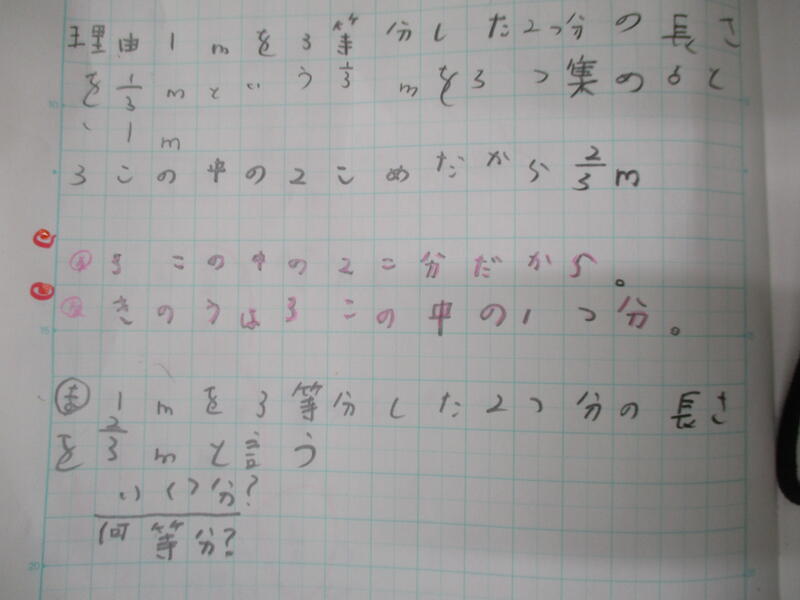 理由1mを3等分した2つ分の長さ
を1/3mという1/3mを3つ集のると
、1m
3この中の2こめだから2/3m
3この中の2こ分だから。
きのうは3この中の1つ分。
ま 1mを3等分した2つ分の長さ
を2/3mと言う
いくつ分?
何等分?
15
20